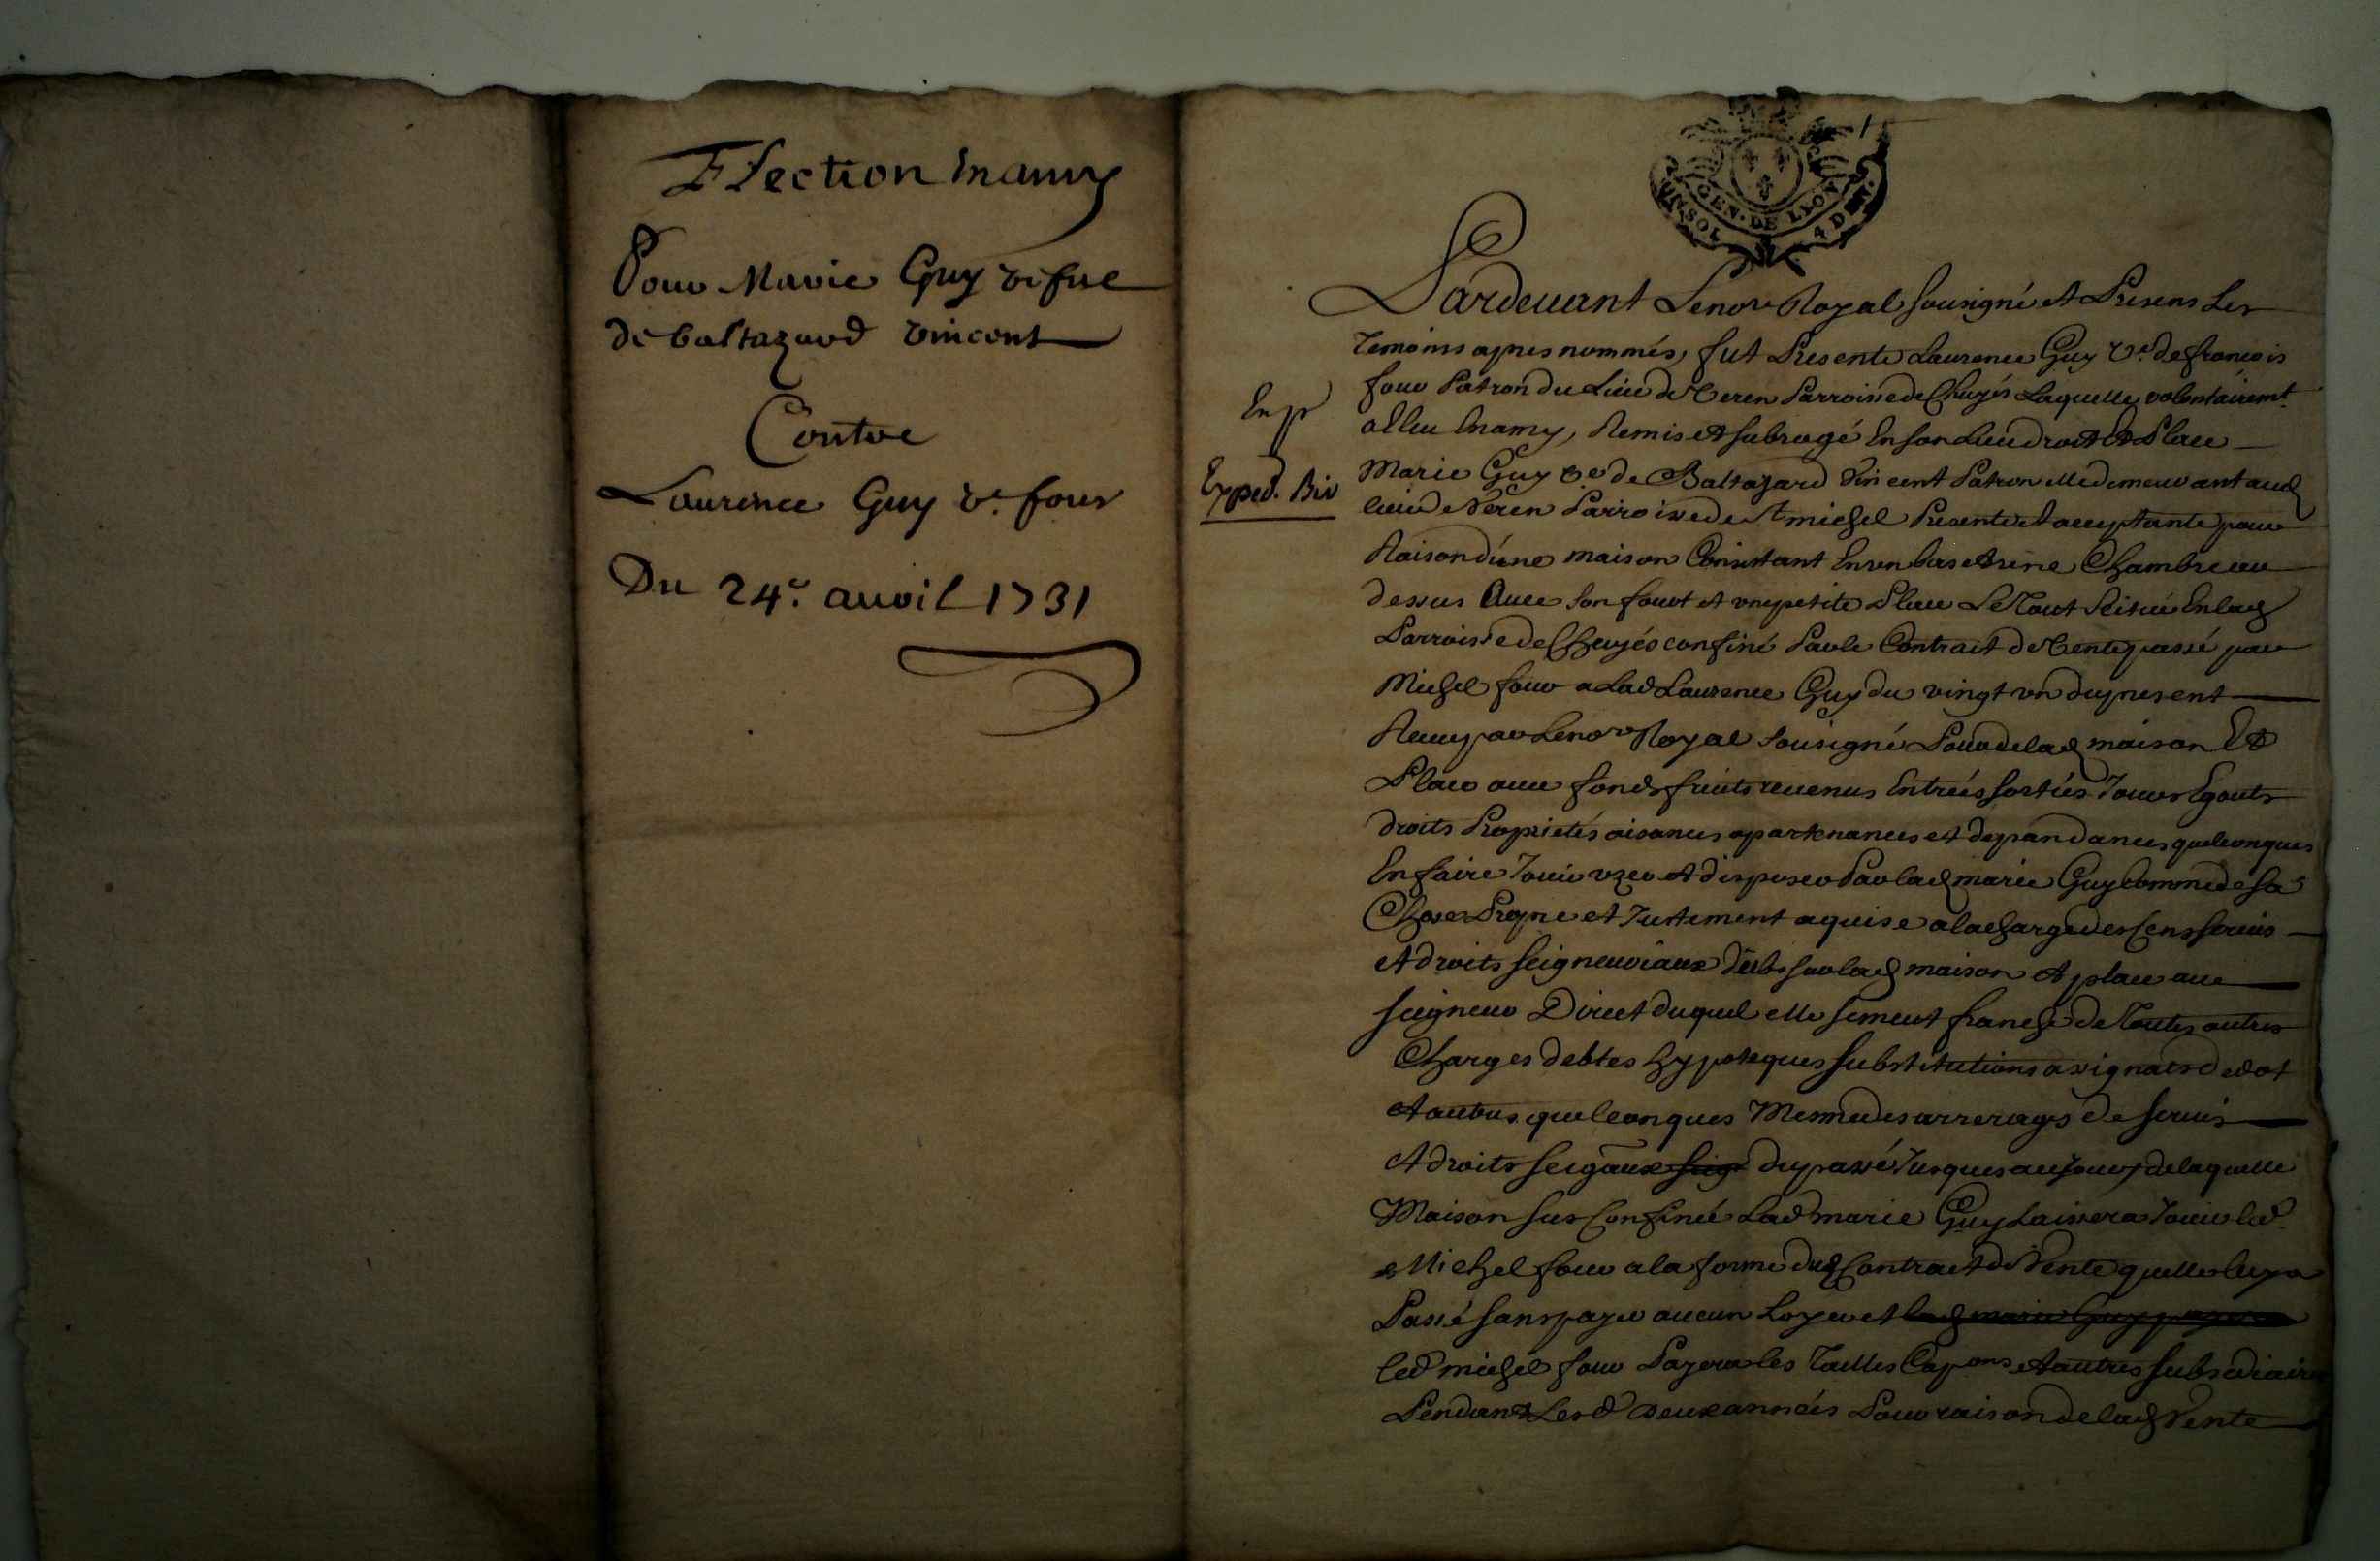 Election En amy
Pour Marie Guy vefue
de baltazard vincent
Contre
Laurence Guy ve. four
Du 24e. auril 1731
GEN. DE LYON
UN SOL 4 DEN.
Pardeuant Le nore Royal sousigné et Presens Les
Temoins apres nommés, fut Presente Laurence Guy ve. de francois
four Patron du Lieu de Veren Parroisse de Chuyés Laquelle volontairemt.
a Eleu En amy, Remis et subrogé En son Lieu droit et Place
Marie Guy ve. de Baltazard Vincent Patron elle demeurant aud
lieu de Veren Parroisse de St michel Presente et acceptante pour
Raison d'une maison Consistant En un bas et une Chambre au
dessus Auec son fourt et vne petite Place Le Tout scitué En lad
Parroisse de Chuyés confiné Par le Contrait de Vente passé par
Michel four a Lad Laurence Guy du vingt un du present
Receu par Le nore Royal sousigné Pour de lad maison Et
Place auec fonds fruits reuenus Entrées sorties Jours Egouts
droits Proprietés aisances apartenances et depandances quelconques
En faire Jouir vzer et disposer Par lad marie Guy Comme de sa
Chose Propre et Justement aquise a la charge des Cens seruis
et droits seigneuriaux deubs sur lad maison et place au
seigneur Direct duquel elle se meut franche de Toutes autres
Charges debtes hypoteques substitutions assignats de dot
et autres quelconques Mesme des arrerages de seruis
et droits seigaux seigr du passé Jusques au Jourdhuy de laquelle
Maison sus Confinée Lad marie Guy Laissera Jouir led.
Michel four a la forme dud Contrait de Vente quelle luy a
Passé sans payer aucun Loyer et lad marie Guy payera
led michel four Payera les Tailles Capons et autres subsediaires
Pendant Lesd deux années Pour raison de lad Vente
Exped. Bir